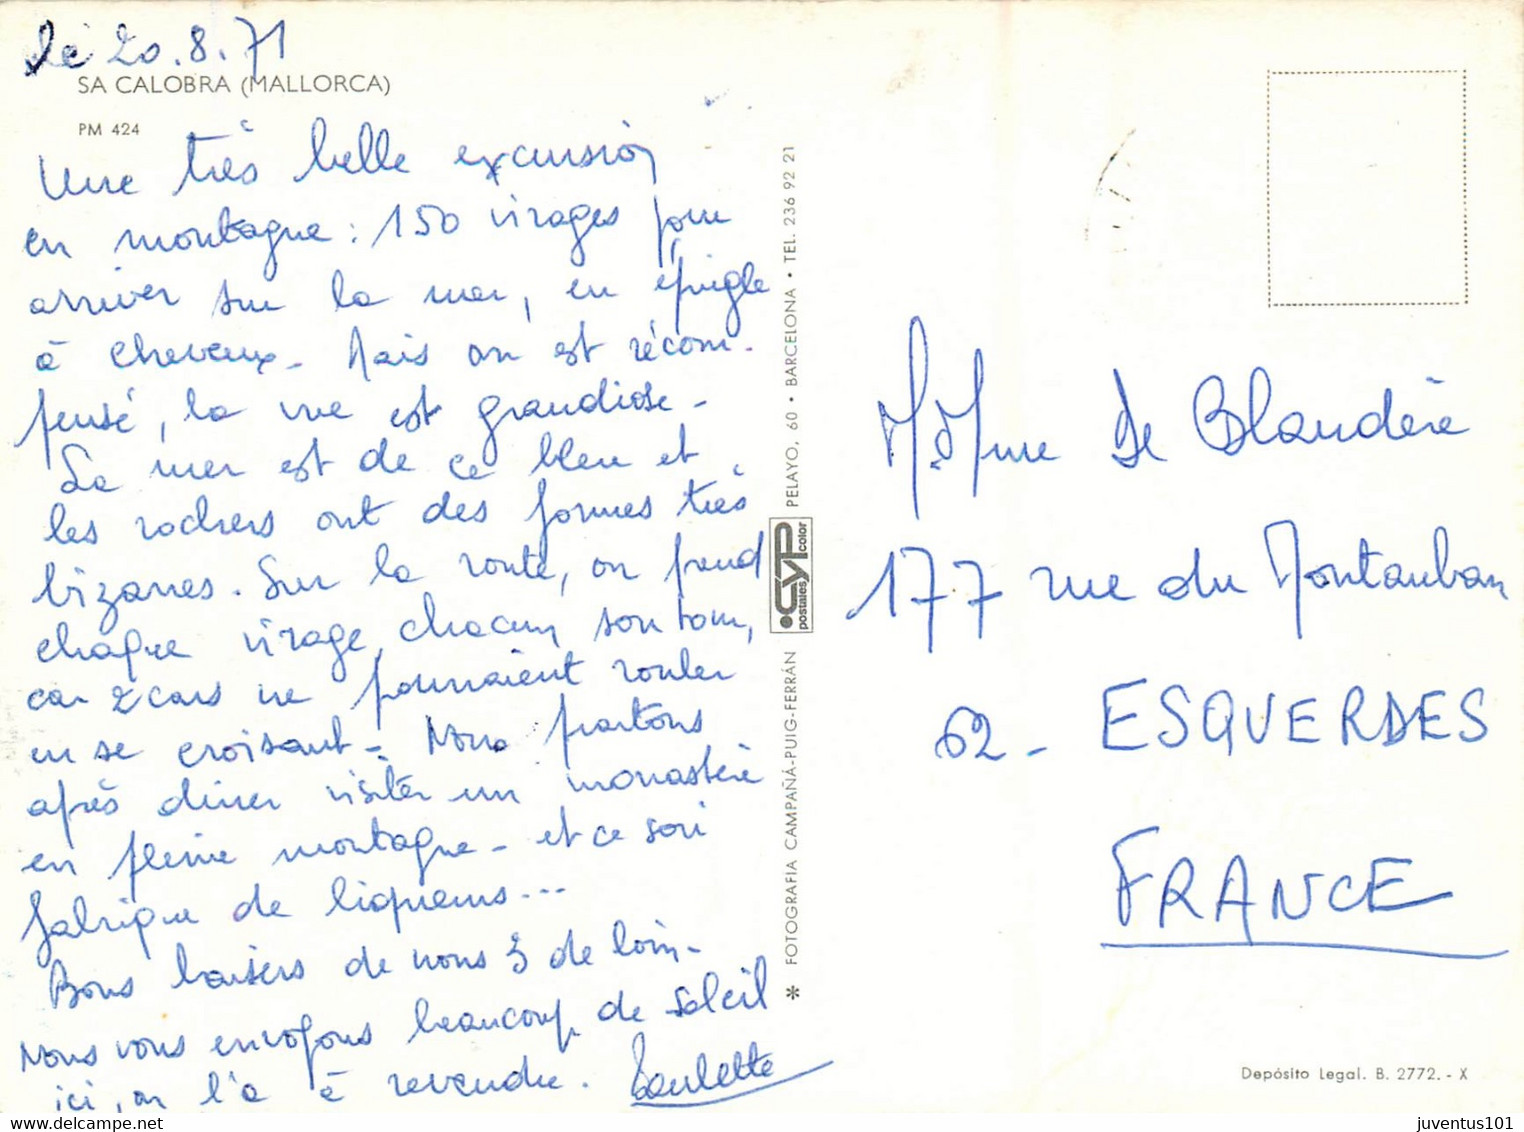 le 20.8.71
SA CALOBRA (MALLORCA)
PM 424
Une très belle excursion
en montagne : 150 virages pour
arriver sur la mer, en épingle
à cheveux - Mais on est récom-
pensé, la vue est grandiose -
La mer est de ce bleu et
les rochers ont des formes très
bizarres. Sur la route, on prend
chaque virage, chacun son tour,
car 2 cars ne pourraient rouler
en se croisant - Nous partons
après diner visiter un monastère
en pleine montagne - et ce soir
fabrique de liqueurs...
Bons baisers de nous 3 de loin -
Nous vous envoyons beaucoup de soleil
ici, on l'a à revendre. Paulette
FOTOGRAFIA CAMPAÑÁ-PUIG-FERRÁN
postales CYP color
PELAYO, 60 • BARCELONA • TEL. 236 92 21
M. Mme De Blandère
177 rue du Montauban
62 - ESQUERDES
FRANCE
Depósito Legal. B. 2772. - X
juventus101